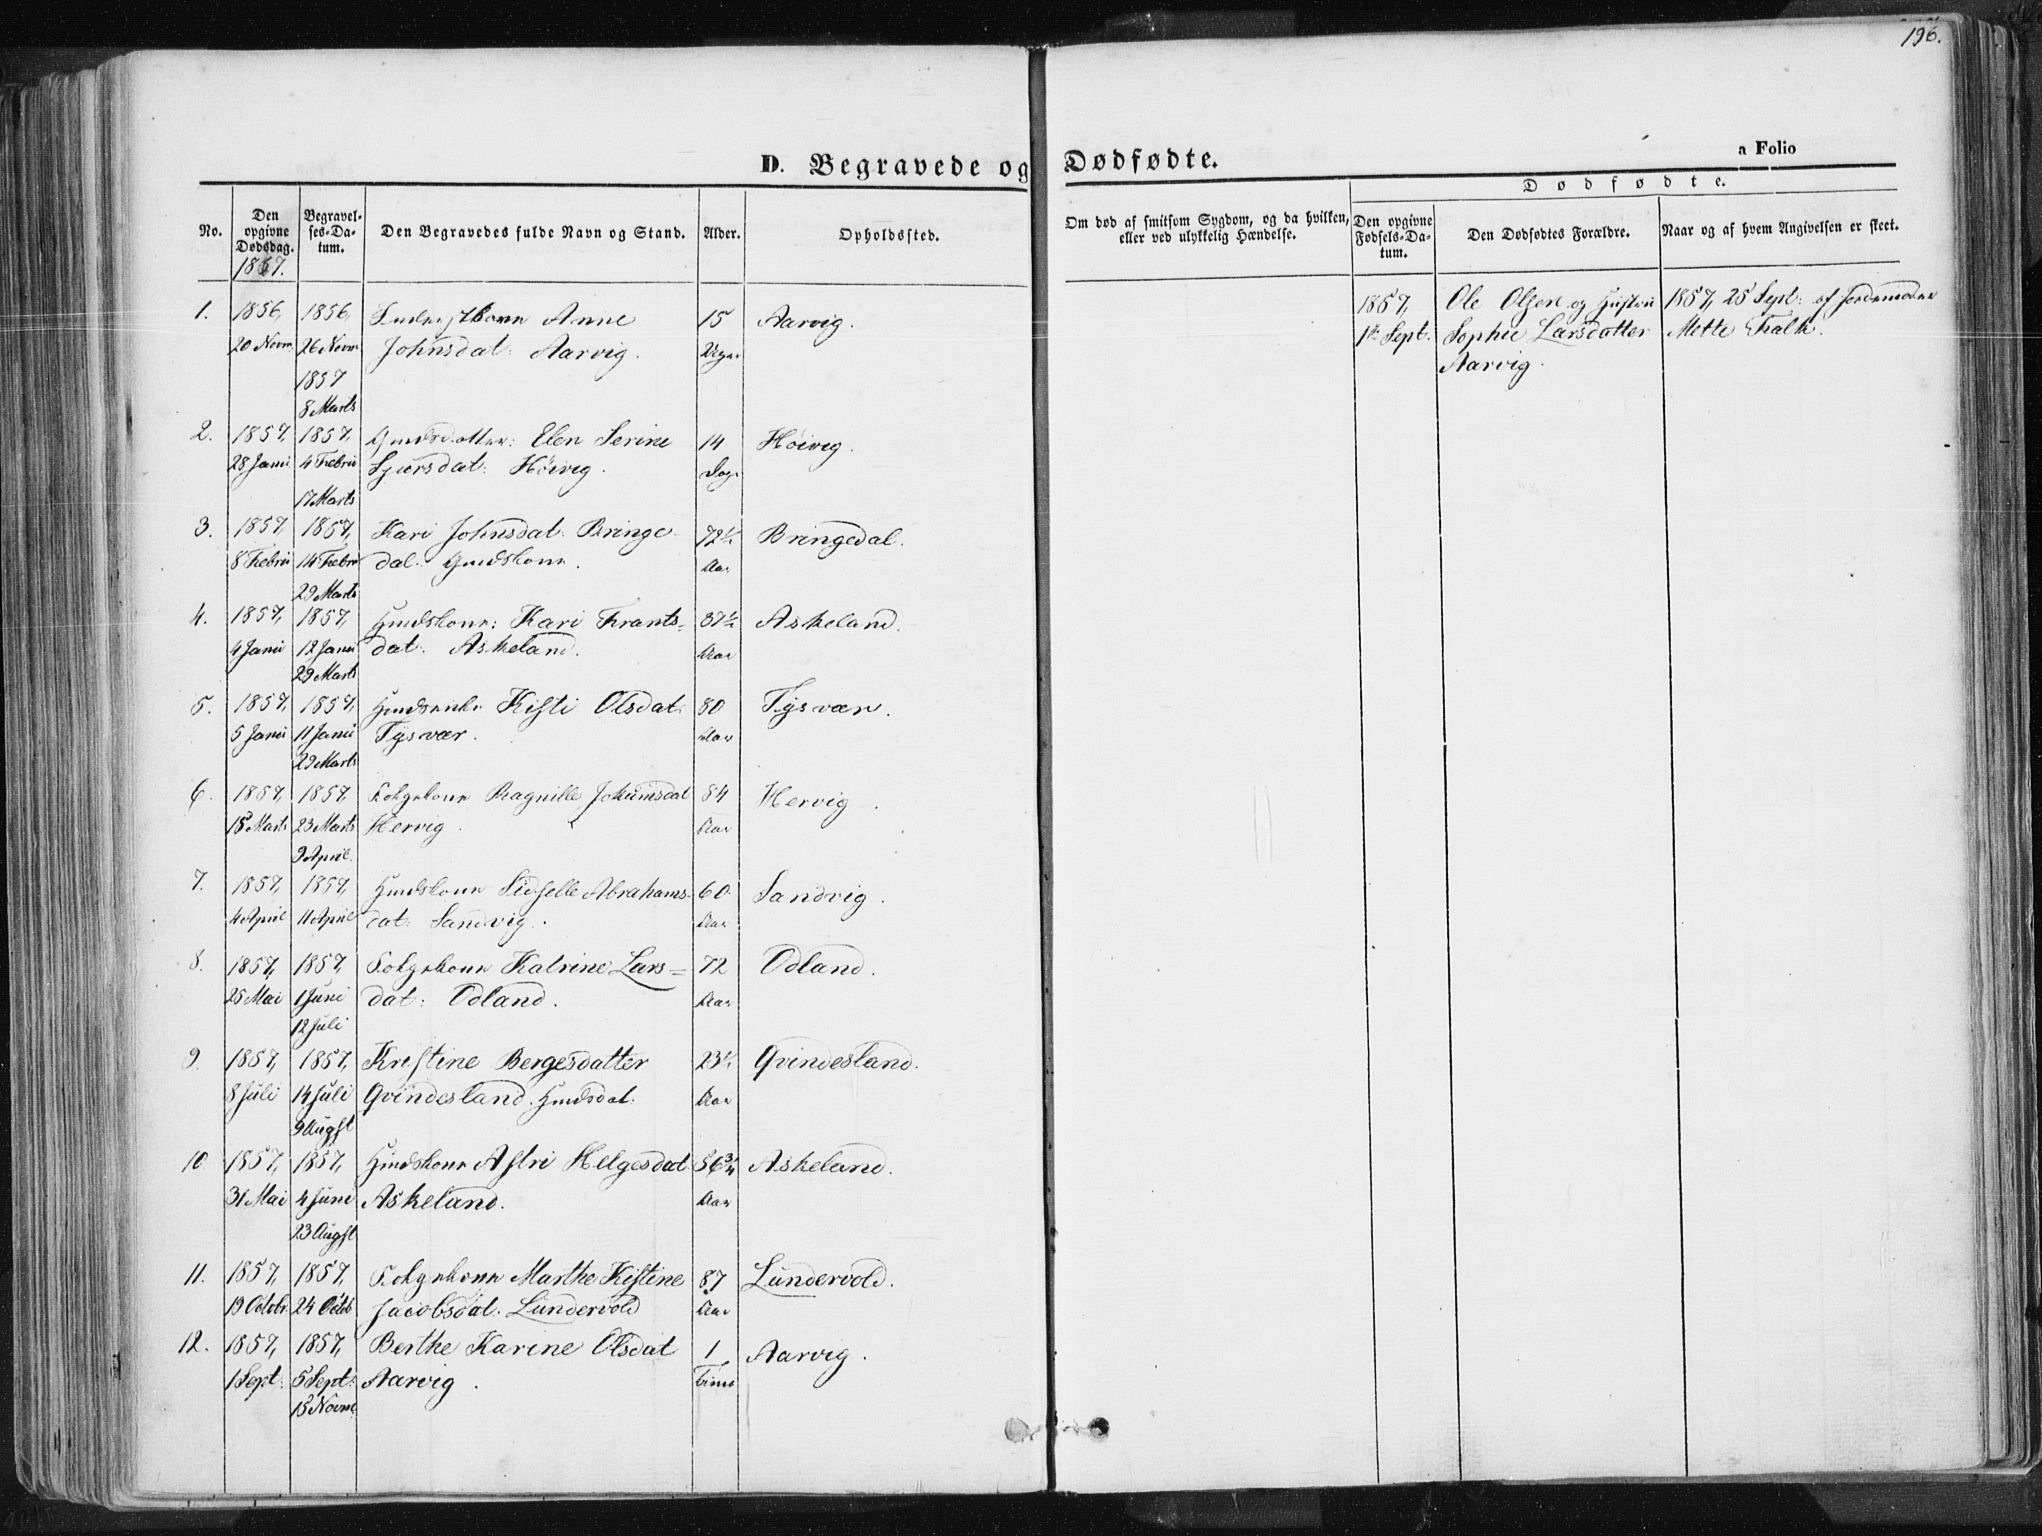 196.
D. Begravede og Dødfødte.
a Folio
No.
Den opgivne Dødsdag.
1857.
Begravelses-Datum.
Den Begravedes fulde Navn og Stand.
Alder.
Opholdssted.
Om død af smitsom Sygdom, og da hvilken, eller ved ulykkelig Hændelse.
Dødfødte.
Den opgivne Fødsels-Datum.
Den Dødfødtes Forældre.
Naar og af hvem Angivelsen er skeet.
1. 1856, 1856, Anne 15 Aarvig.
20 Novm. 26 Novm Johnsdat: Aarvig. Uger
1857
8 Marts
1857, Ole Olsen og Hustru 1857, 25 Sept: af Jordemoder
1ste Sept. Sophie Larsdatter Mette Falk.
Aarvig.
2. 1857, 1857, Gmdsdatter: Elen Serine 14 Höivig.
28 Janu 4 Febru Sjursdat: Höivig. Dage
17 Marts
3. 1857 1857, Kari Johnsdat: Bringe- 72½ Bringedal.
8 Febru 14 Febru dal. Gmdskone. Aar
29 Marts
4. 1857, 1857, Gmdskone: Kari Frants- 37½ Askeland.
4 Janu 12 Janu dat: Askeland. Aar
29 Marts
5. 1857, 1857, Gmdsenke Kisti Olsdat: 80 Tysvær.
5 Janu 11 Janu Tysvær. Aar
29 Marts
6. 1857, 1857, Folgekone Ragnille Jokumsdat 84 Hervig.
15 Marts 23 Marts Hervig. Aar
9 April.
7. 1857, 1857, Gmdskone Sidselle Abrahams- 60 Sandvig.
4 April 11 April dat: Sandvig. Aar
8. 1857, 1857, Folgekone Katrine Lars= 72 Odland.
25 Mai 1 Juni dat: Odland. Aar
12 Juli
9. 1857, 1857, Kristine Bergesdatter 23½ Qvindesland.
8 Juli 14 Juli Qvindesland. Gmdsdat: Aar
9 Augst
10 1857, 1857, Gmdskone Astri Helgesdat 56¾ Askeland.
31 Mai 4 Juni Askeland. Aar
23 Augst
11. 1857, 1857, Folgekone Marthe Kistine 87 Lundervold.
19 Octobr. 24 Octb Jacobsdat. Lundervold Aar
12. 1857, 1857, Berthe Karine Olsdat 1 Aarvig.
1 Sept: 5 Sept: Aarvig. Time
15 Novm.